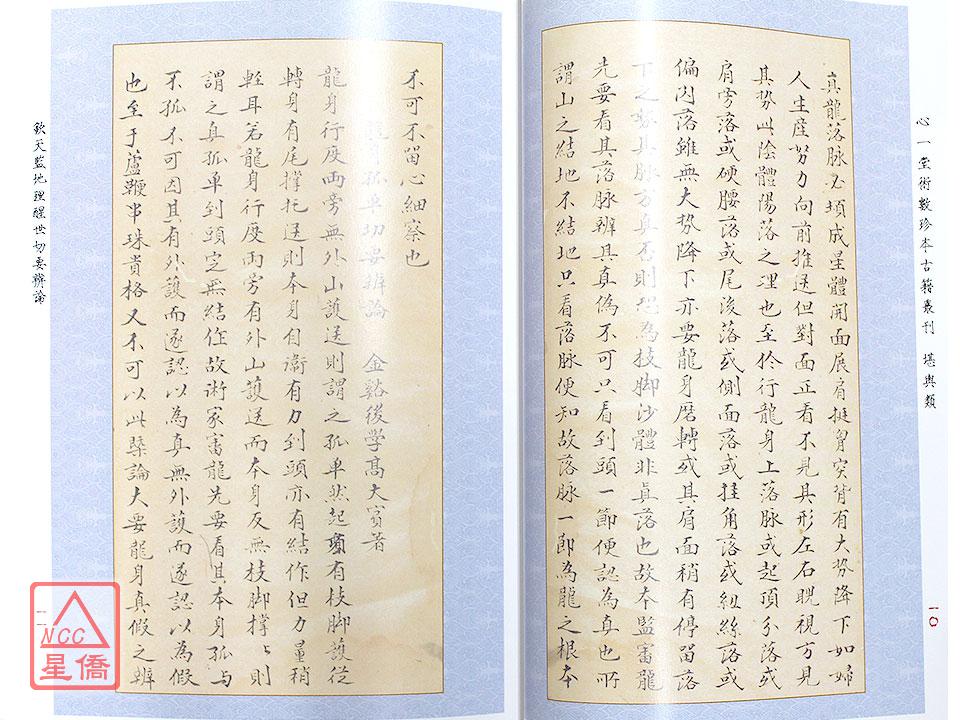 心一堂術數珍本古籍叢刊 堪輿類
一〇
真龍落脉必須成星體開面展肩挺胷突背有大勢降下如婦
人生產努力向前推送但對面正看不見其形左右睨視方見
其勢此陰體陽落之理也至於行龍身上落脉或起頂分落或
肩旁落或硬腰落或尾後落或側面落或挂角落或紐絲落或
偏閃落雖無大勢降下亦要龍身磨轉或其肩面稍有停留落
下之勢其脉方真否則恐為枝脚沙體非真落也故本監審龍
先要看其落脉辨其真偽不可只看到頭一節便認為真也所
謂山之結地不結地只看落脉便知故落脉一節為龍之根本
不可不留心細察也
龍身孤單切要辨論 金谿後學髙大賓著
龍身行度兩旁無外山護送則謂之孤單然起頂有枝脚護從
轉身有尾撑托送則本身自衛有力到頭亦有結作但力量稍
輕耳若龍身行度兩旁有外山護送而本身反無枝脚撑〻則
謂之真孤單到頭定無結作故術家審龍先要看其本身孤與
不孤不可因其有外護而遂認以為真無外護而遂認以為假
也至于蘆鞭串珠貴格又不可以此槩論大要龍身真假之辨
欽天監地理醒世切要辨論
一一
NCC
星僑